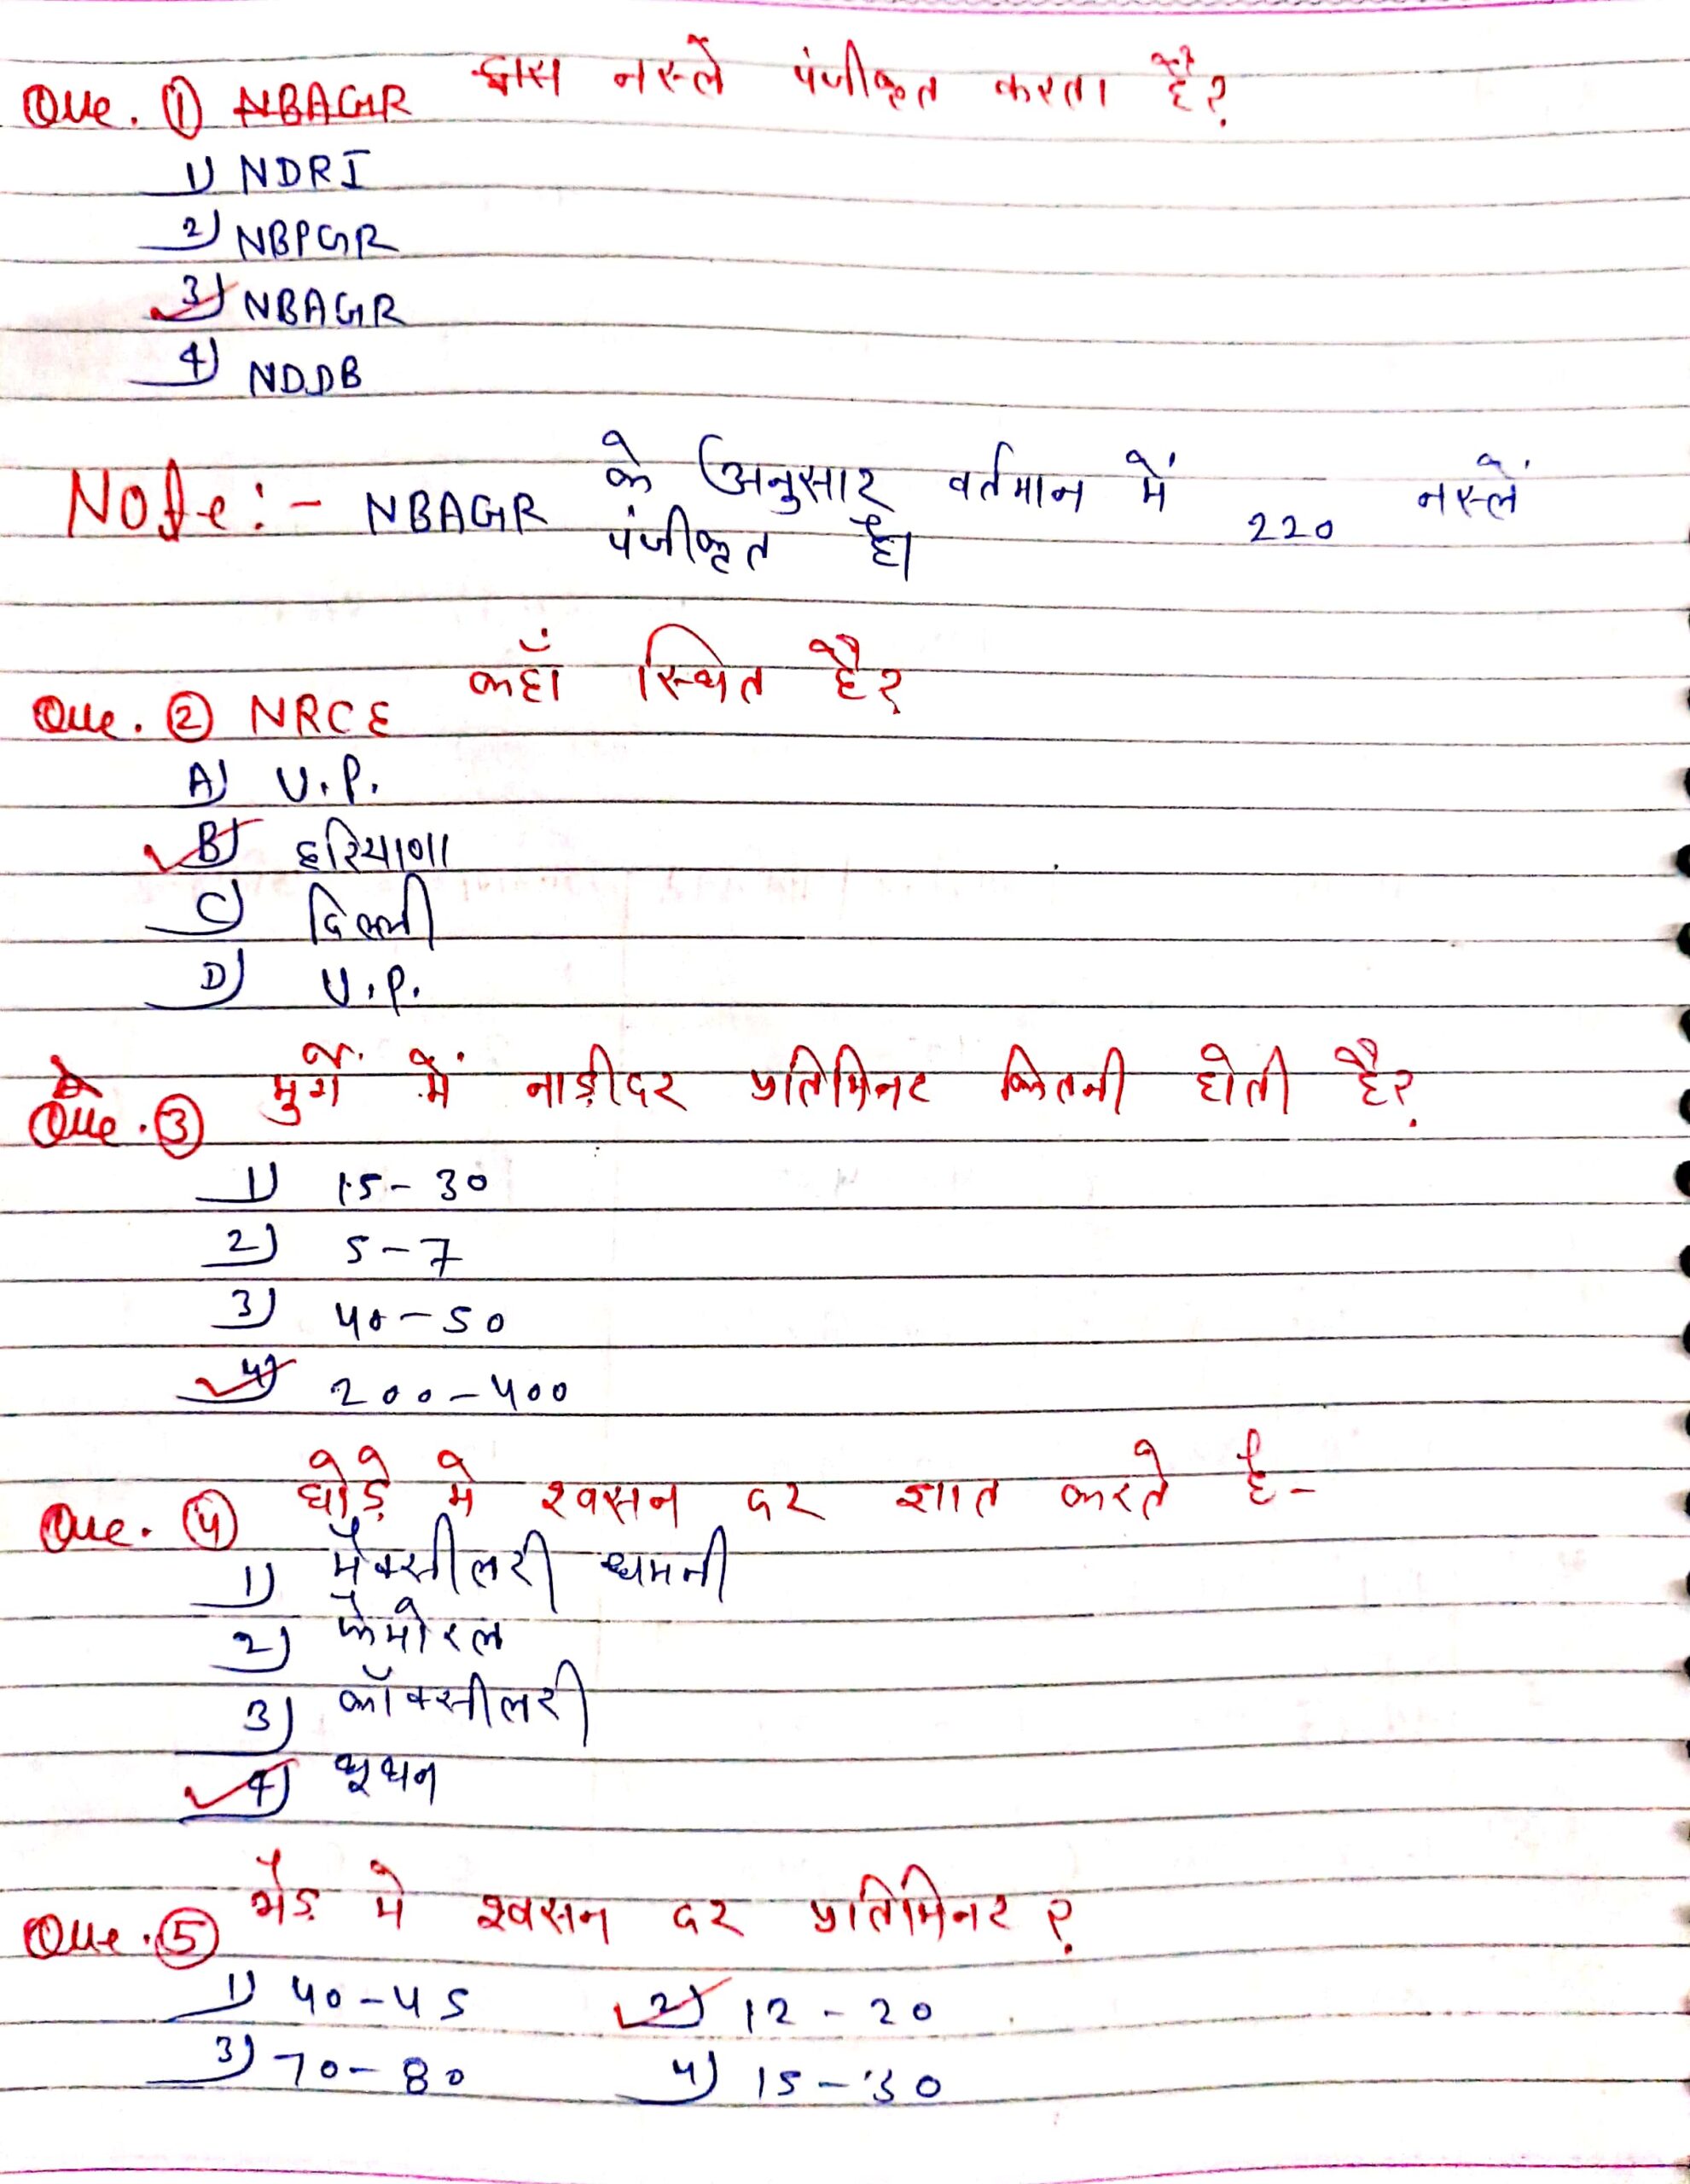 Que. ① NBAGR द्वारा नस्ले पंजीकृत करता है?
1) NDRI
2) NBPGR
3) NBAGR
4) NDDB
Note:- NBAGR के अनुसार वर्तमान में 220 नस्लें
पंजीकृत है।
Que. ② NRCE कहाँ स्थित है?
A) U.P.
B) हरियाणा
C) दिल्ली
D) U.P.
Que. ③ मुर्गे में नाड़ीदर प्रतिमिनट कितनी होती है?
1) 15-30
2) 5-7
3) 40-50
4) 200-400
Que. ④ घोड़े मे श्वसन दर ज्ञात करते है-
1) मैक्सीलरी धमनी
2) फैमोरल
3) कॉक्सीलरी
4) थूथन
Que. ⑤ भेड़ मे श्वसन दर प्रतिमिनट ?
1) 40-45 2) 12-20
3) 70-80 4) 15-30